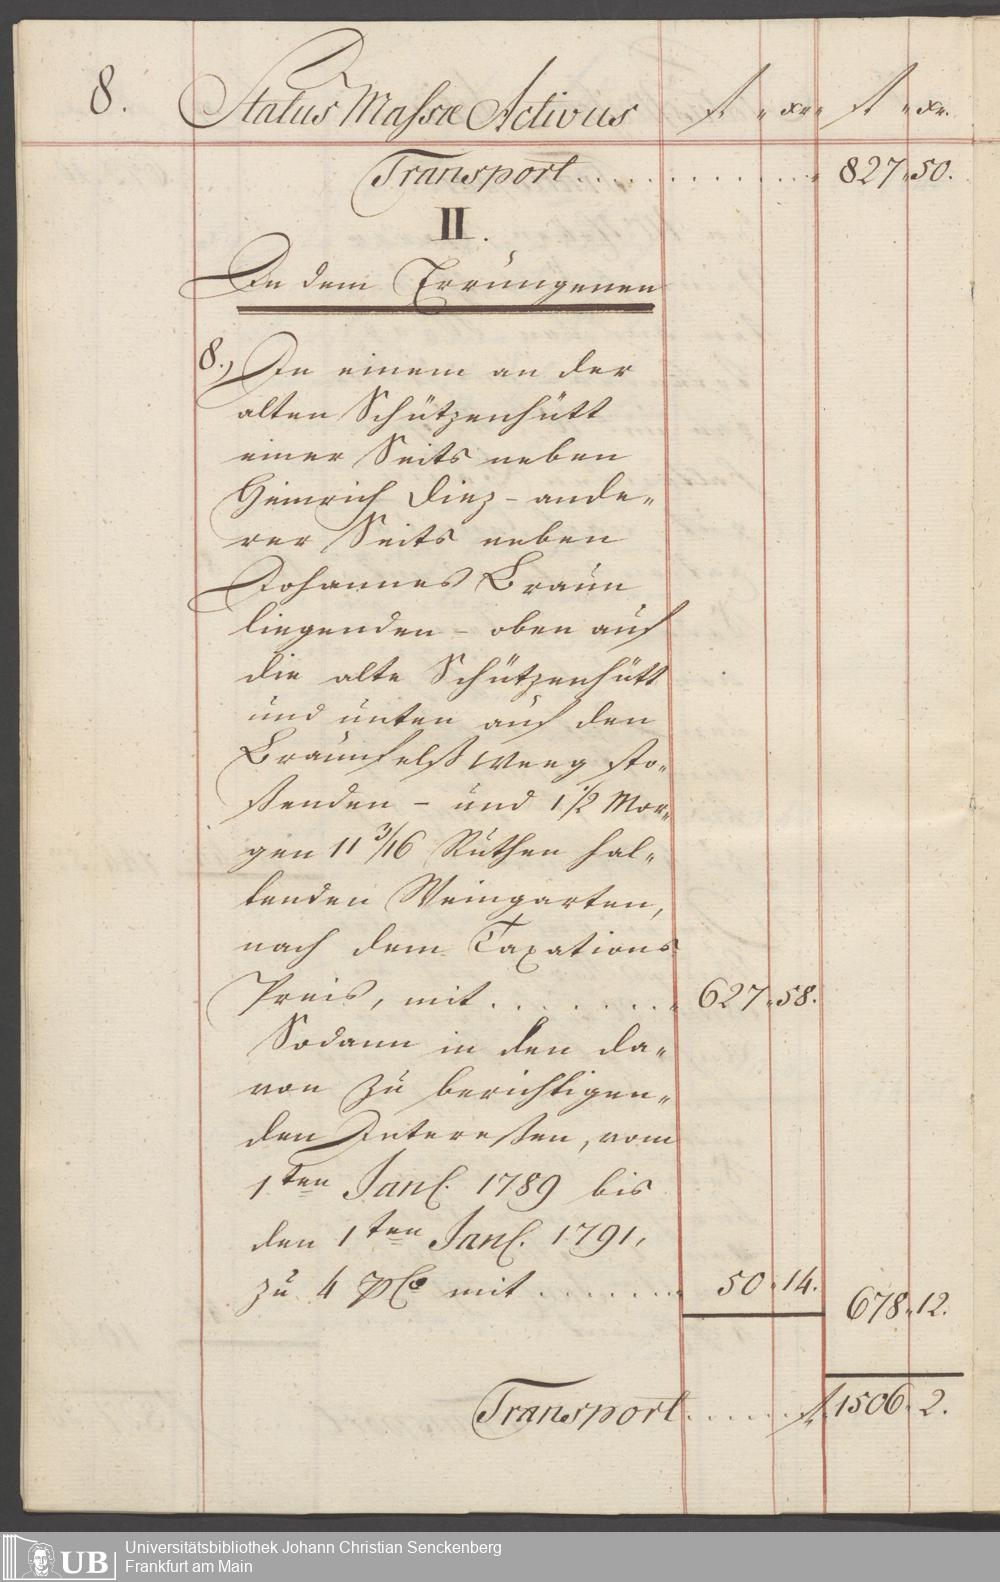 8. Status Massæ Activus fl „ xr„ fl „ xr.
Transport . . . . . . . . . . . . „ 827 „ 50.
II.
In dem Errungenen
8.) In einem an der
alten Schützenhütt
einer Seits neben
Heinrich Diez – ande„
rer Seits neben
Johannes Braun
liegenden – oben auf
die alte Schützenhütt
und unten auf den
Braunfelß Weeg sto„
ßenden – und 1 1/2 Mor„
gen 11 3/16 Ruthen hal„
tenden Weingarten,
nach dem Taxations
Preis, mit . . . . . . . „ 627 „ 58.
Sodann in den da„
von zu berichtigen„
den Interessen, vom
1ten Jan. 1789 bis
den 1ten Jan. 1791,
zu 4 pCo mit . . . . . . . „ 50 „ 14. 678 „ 12.
Transport . . . . . . fl. 1506 „ 2.
UB Universitätsbibliothek Johann Christian Senckenberg
Frankfurt am Main